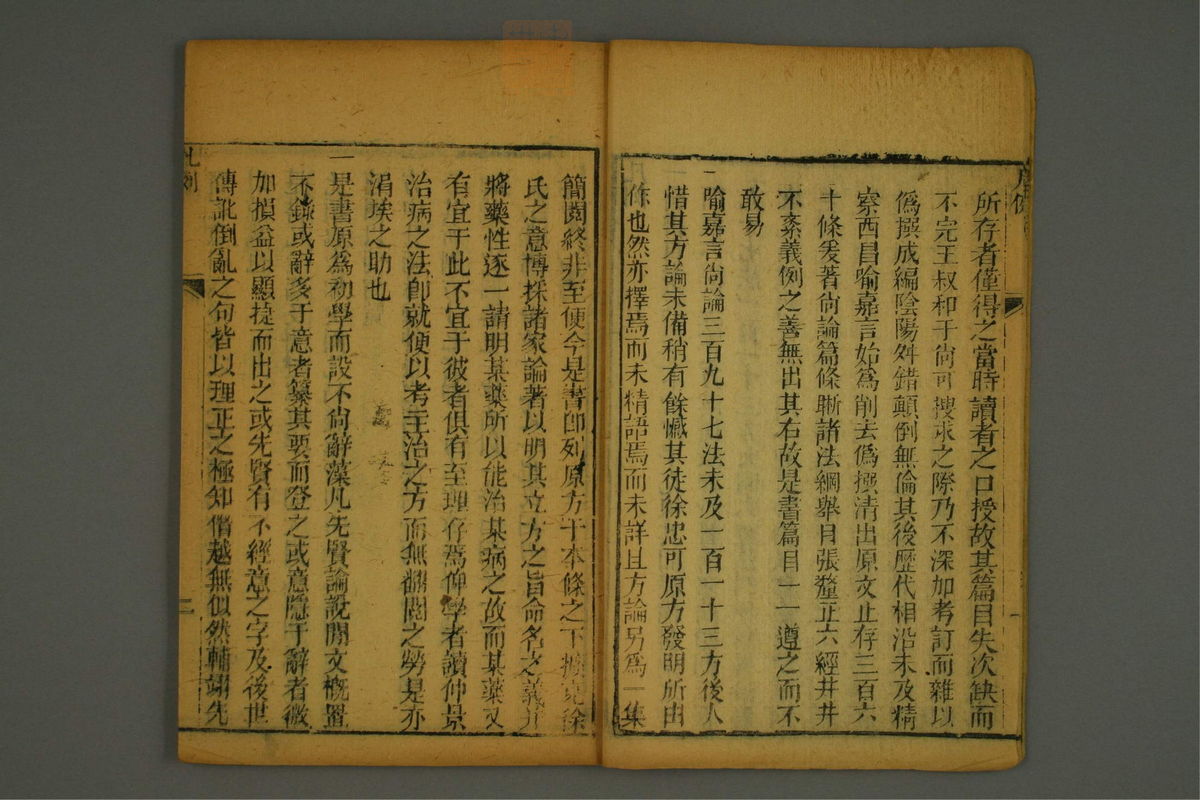 所存者僅得之當時讀者之口授故其篇目失次缺而
不完王叔和于尙可搜求之際乃不深加考訂而雜以
僞撰成編陰陽舛錯顛倒無倫其後歷代相沿未及精
察西昌喻嘉言始爲削去僞撰清出原文止存三百六
十條爰著尙論篇條晰諸法綱舉目張釐正六經井井
不紊義例之善無出其右故是書篇目一一遵之而不
敢易
一喻嘉言尙論三百九十七法未及一百一十三方後人
惜其方論未備稍有餘憾其徒徐忠可原方發明所由
作也然亦擇焉而未精語焉而未詳且方論另爲一集
簡閱終非至便今是書即列原方于本條之下擴徐
氏之意博採諸家論著以明其立方之旨命名之義并
將藥性逐一請明某藥所以能治某病之故而某藥又
有宜于此不宜于彼者俱有至理存焉俾學者讀仲景
治病之法卽就便以考主治之方而無翻閱之勞是亦
涓埃之助也
一是書原爲初學而設不尙辭藻凡先賢論說閒文槪置
不錄或辭多于意者纂其要而登之或意隱于辭者微
加損益以顯㨗而出之或先賢有不經意之字及後世
傳訛倒亂之句皆以理正之極知僭越無似然輔翊先
凡例
二